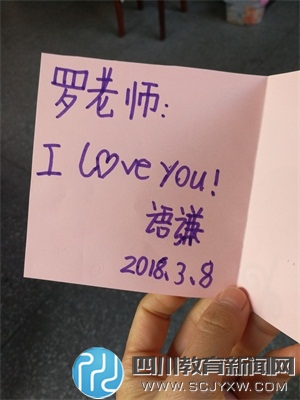 罗老师:
I Love you!
语谦
2018.3.8
四川教育新闻网
WWW.SCJYXW.COM